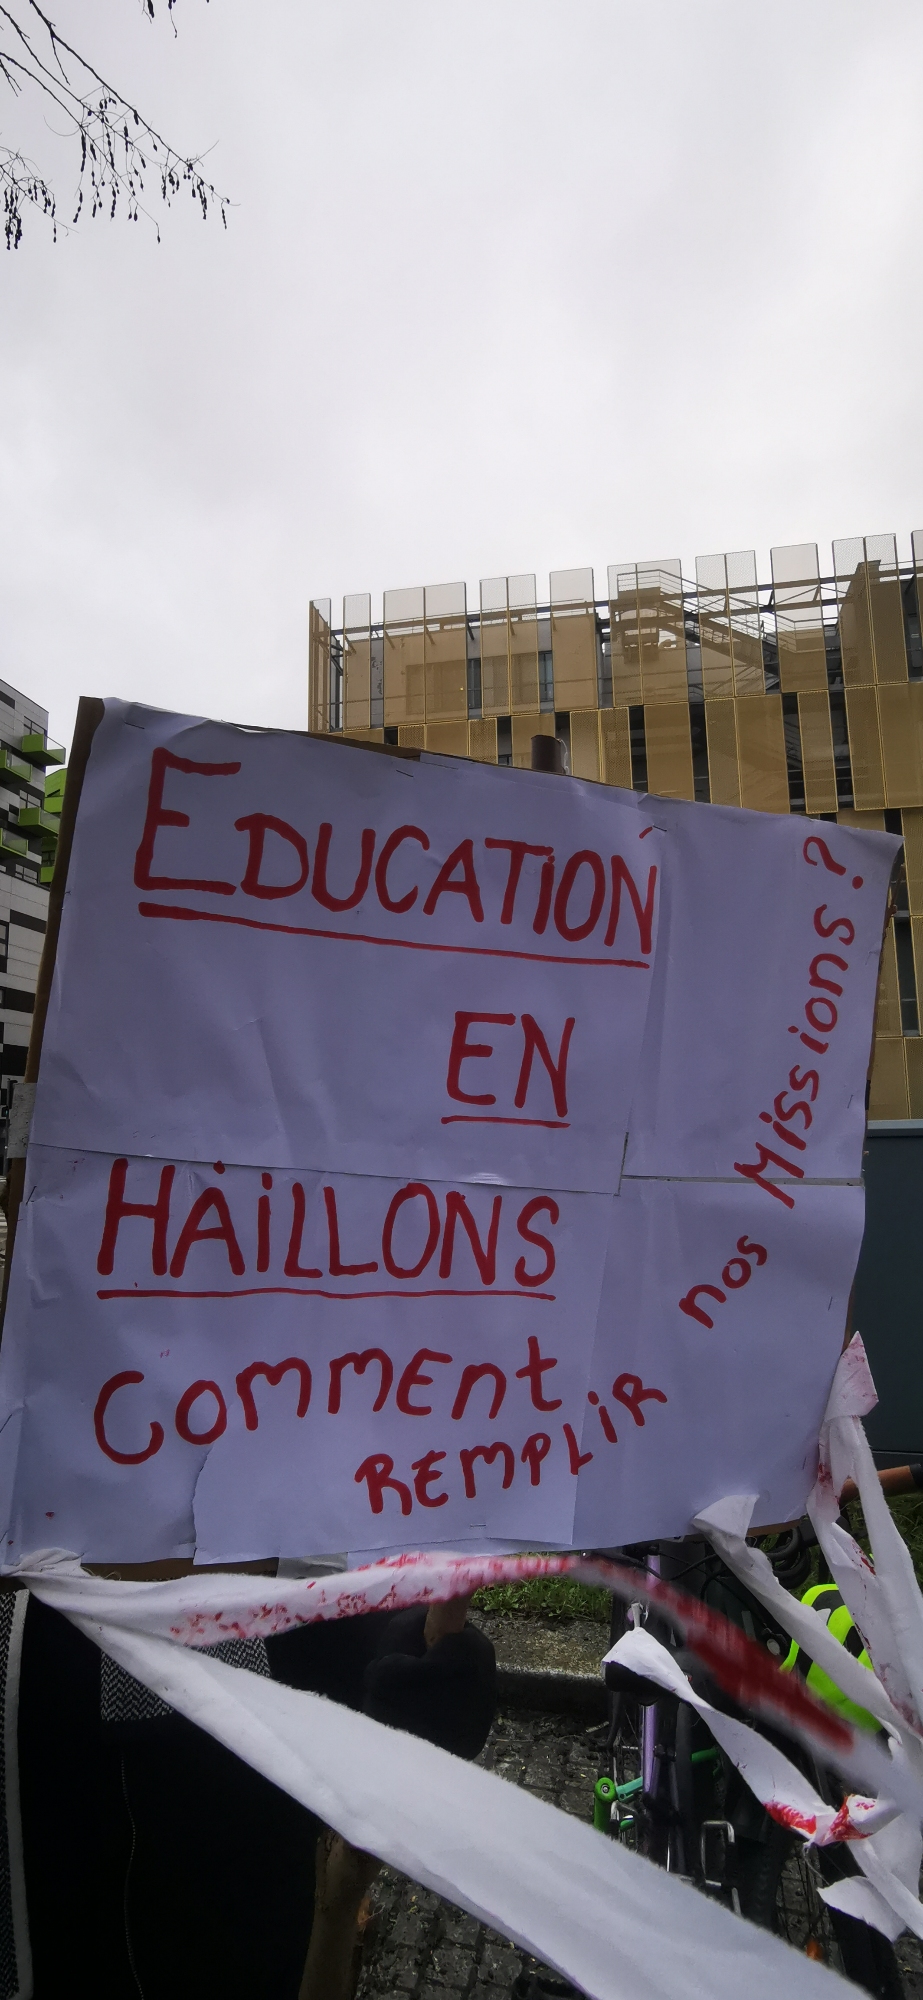 EDUCATION
EN
HAILLONS
Comment
REMPLIR nos Missions ?